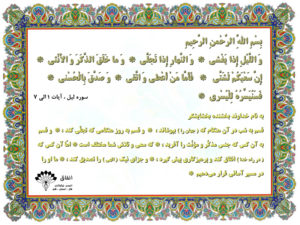 بِسْمِ اللّٰهِ الرَّحْمنِ الرَّحيمِ
وَ اللَّيْلِ إِذا يَغْشى ۞ وَ النَّهارِ إِذا تَجَلَّى ۞ وَ ما خَلَقَ الذَّكَرَ وَ الْأُنْثى ۞
إِنَّ سَعْيَكُمْ لَشَتَّى ۞ فَأَمَّا مَنْ أَعْطى وَ اتَّقى ۞ وَ صَدَّقَ بِالْحُسْنى ۞
فَسَنُيَسِّرُهُ لِلْيُسْرى ۞
سوره لیل ، آیات ۱ الی ۷
به نام خداوند بخشنده بخشایشگر
قسم به شب در آن هنگام که (جهان را) بپوشاند ؛ ۞ و قسم به روز هنگامی که تجلّی کند ؛ ۞ و قسم
به آن کس که جنس مذکّر و مؤنّث را آفرید ؛ ۞ که سعی و تلاش شما مختلف است ۞ امّا آن کس که
(در راه خدا) انفاق کند و پرهیزگاری پیش گیرد ؛ ۞ و جزای نیک (الهی) را تصدیق کند ؛ ۞ ما او را
در مسیر آسانی قرار می‌دهیم ۞
انفاق